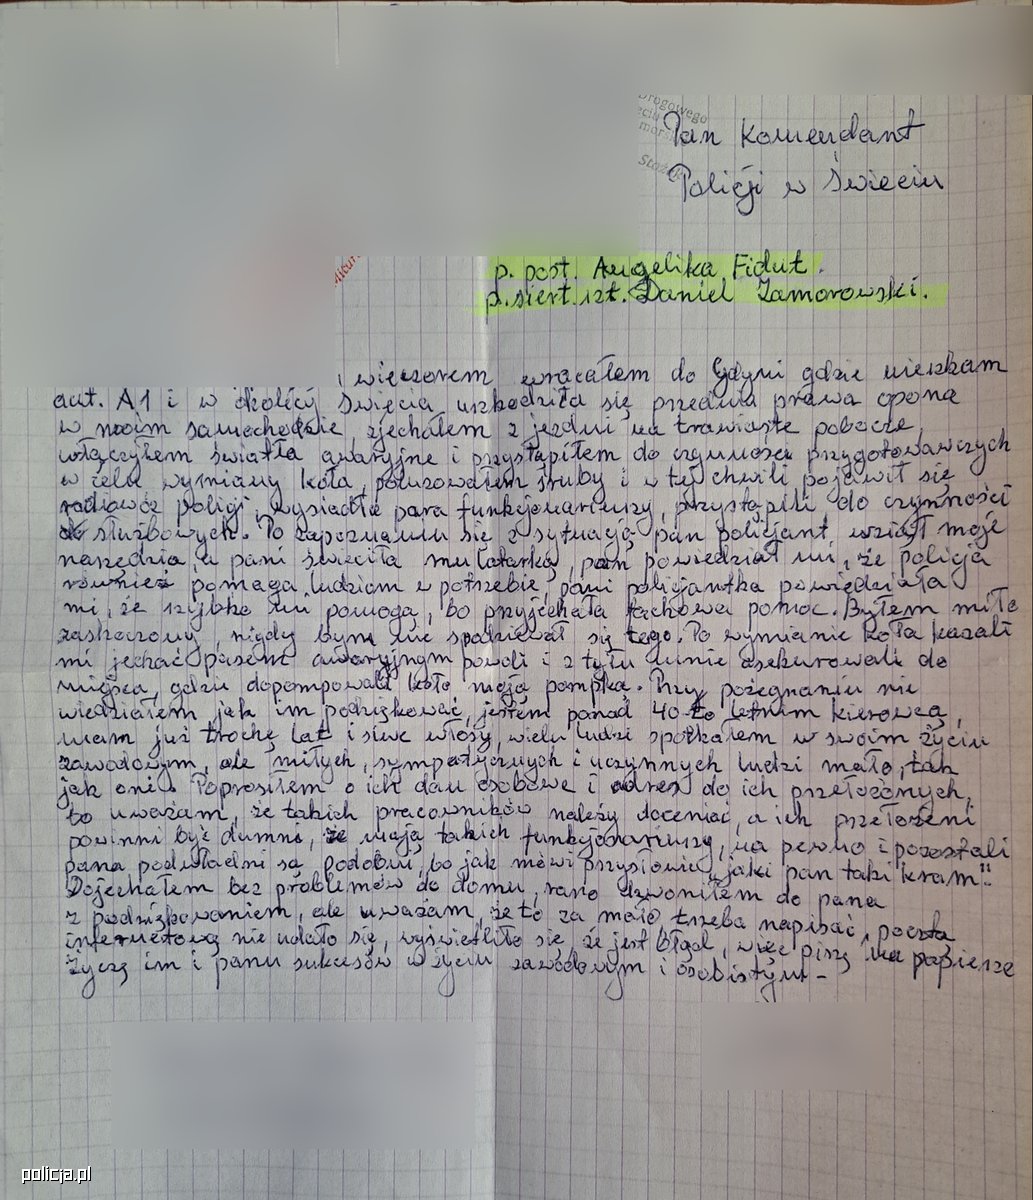 Drogowego
Pan Komendant
Policji w Świeciu
p. post. Angelika Fidut.
p. sierż. szt. Daniel Zamorowski.
wieczorem wracałem do Gdyni gdzie mieszkam
aut. A1 i w okolicy Świecia uszkodziła się przednia prawa opona
w moim samochodzie, zjechałem z jezdni na trawiaste pobocze,
włączyłem światła awaryjne i przystąpiłem do czynności przygotowawczych
w celu wymiany koła, poluzowałem śruby i w tej chwili pojawił się
radiowóz policji, wysiadła para funkcjonariuszy, przystąpili do czynności
służbowych. Po zapoznaniu się z sytuacją pan policjant wziął moje
narzędzia, a pani świeciła mu latarką, pan powiedział mi, że policja
również pomaga ludziom w potrzebie, pani policjantka powiedziała
mi, że szybko mi pomogą, bo przyjechała fachowa pomoc. Byłem mile
zaskoczony, nigdy bym nie spodziewał się tego. Po wymianie koła kazali
mi jechać pasem awaryjnym powoli i z tyłu mnie asekurowali do
miejsca, gdzie dopompowali koło moją pompką. Przy pożegnaniu nie
wiedziałem jak im podziękować, jestem ponad 40-to letnim kierowcą,
mam już trochę lat i siwe włosy, wielu ludzi spotkałem w swoim życiu
zawodowym, ale miłych, sympatycznych i uczynnych ludzi mało, tak
jak oni. Poprosiłem o ich dane osobowe i adres do ich przełożonych,
bo uważam, że takich pracowników należy doceniać, a ich przełożeni
powinni być dumni, że mają takich funkcjonariuszy, na pewno i pozostali
pana podwładni są podobni, bo jak mówi przysłowie „jaki pan taki kram".
Dojechałem bez problemów do domu, rano dzwoniłem do pana
z podziękowaniem, ale uważam, że to za mało trzeba napisać, poczta
internetową nie udało się, wyświetliło się, że jest błąd, więc piszę na papierze
Życzę im i panu sukcesów w życiu zawodowym i osobistym -
policja.pl